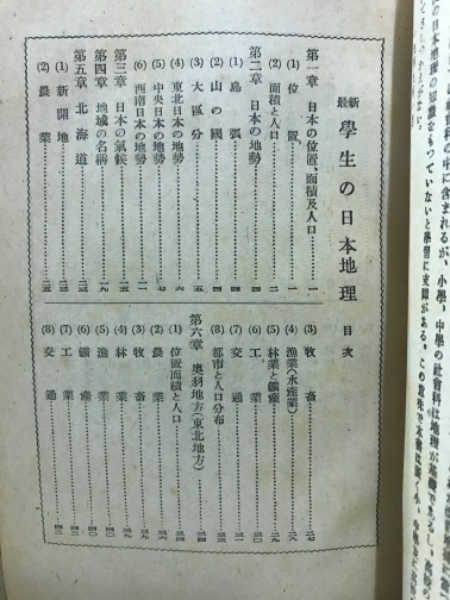 科の中に含まれるが、小學、中學の社會科は地理が基礎であるし、高校の
の日本地理の知識をもつていないと學習に支障がある。この意味で本書は廣く小、中學
最新 學生の日本地理 目次
第一章 日本の位置、面積及人口……一
(1) 位置……一
(2) 面積と人口……二
第二章 日本の地勢……四
(1) 島張……四
(2) 山の國……四
(3) 大區分……五
(4) 東北日本の地勢……六
(5) 中央日本の地勢……七
(6) 西南日本の地勢……一一
第三章 日本の氣候……一五
第四章 地域の名稱……一九
第五章 北海道……二三
(1) 新開地……二三
(2) 農業……二五
(3) 牧畜……二七
(4) 漁業(水産業)……二八
(5) 林業と鑛産……二九
(6) 工業……三〇
(7) 交通……三一
(8) 都市と人口分布……三三
第六章 奥羽地方(東北地方)……三四
(1) 位置面積と人口……三四
(2) 農業……三六
(3) 牧畜……三九
(4) 林業……三九
(5) 漁業……四〇
(6) 鑛産……四〇
(7) 工業……四二
(8) 交通……四三